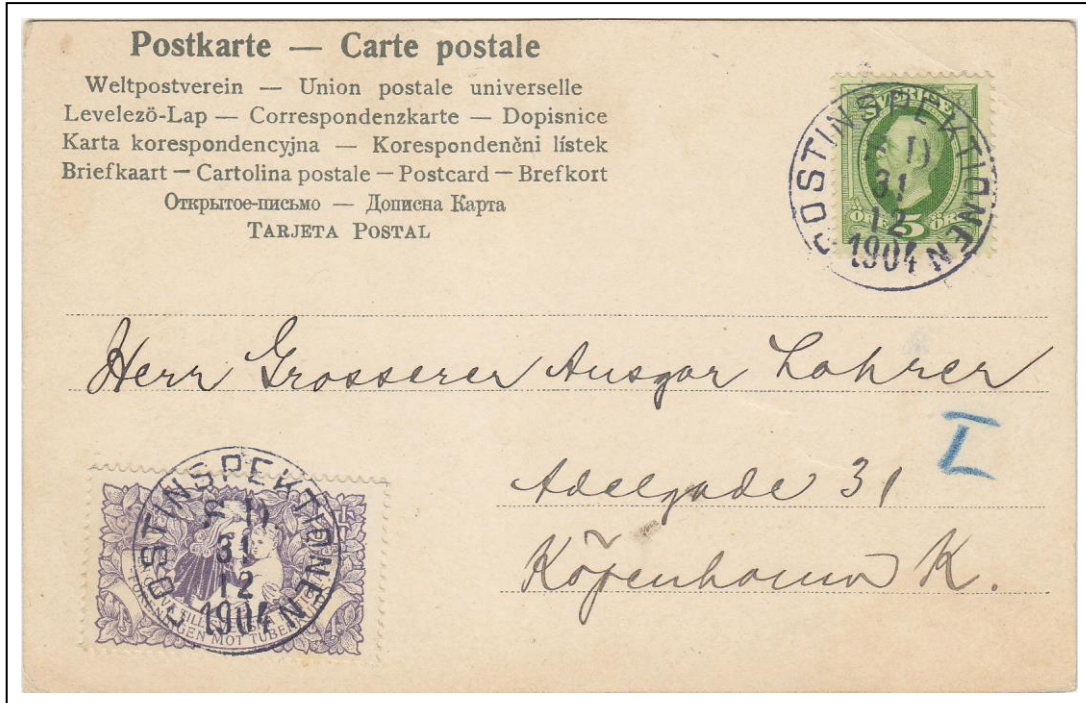 Postkarte — Carte postale
Weltpostverein — Union postale universelle
Levelező-Lap — Correspondenzkarte — Dopisnice
Karta korespondencyjna — Korespondenční lístek
Briefkaart — Cartolina postale — Postcard — Brefkort
Открытое-письмо — Дописна Карта
TARJETA POSTAL
SVERIGE
ÖRE 5 ÖRE
POSTINSPEKTIONEN
31
12
1904
Herr Grosserer Ansgar Lohrer
I
Adelgade 31
Köpenhamn K.
POSTINSPEKTIONEN
31
12
1904
FÖRENINGEN MOT